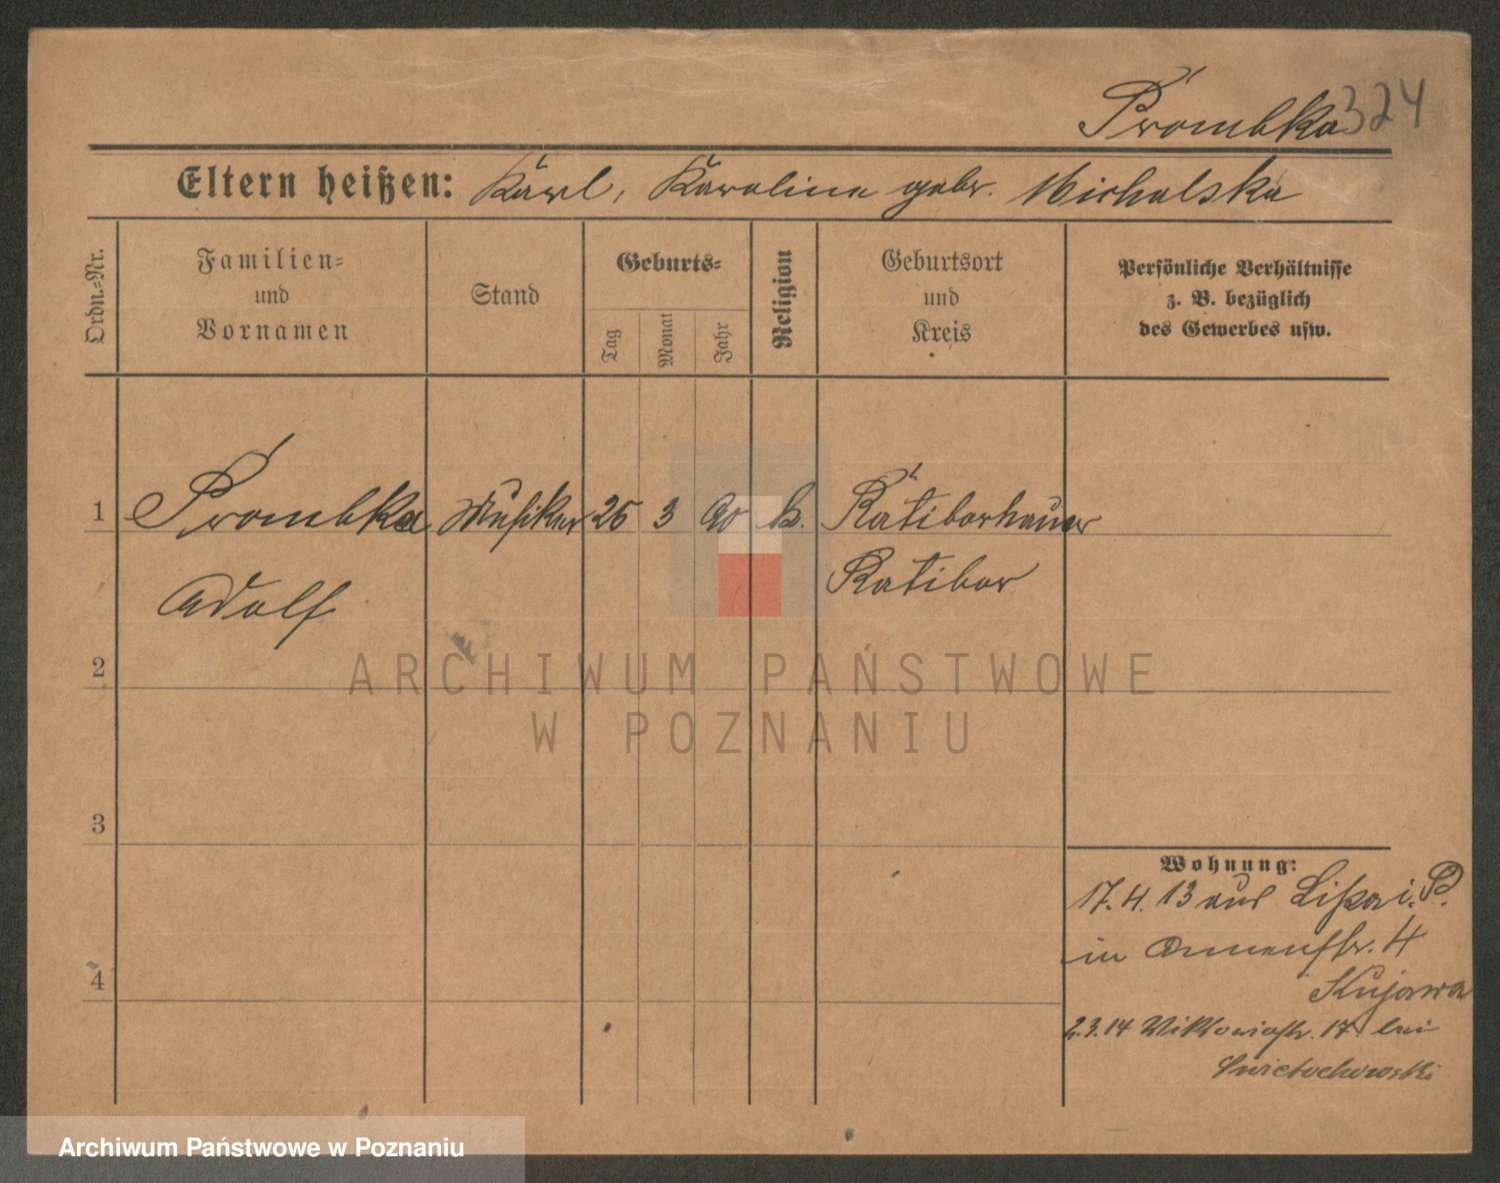 Prombka 324
Eltern heißen: Karl, Karoline gebr. Michalska
Ordn.-Nr.
Familien-
und
Vornamen
Stand
Geburts-
Tag
Monat
Jahr
Religion
Geburtsort
und
Kreis
Persönliche Verhältnisse
z. B. bezüglich
des Gewerbes usw.
1 Prombka Musiker 26 3 90 k. Ratiborhauer
Adolf Ratibor
2
ARCHIWUM PAŃSTWOWE
W POZNANIU
3
Wohnung:
17.4.13 aus Lissa i. P.
in Annenstr. 4
4
Kujawa
2.3.14 Viktoriastr. 17 bei
Swietochowski
Archiwum Państwowe w Poznaniu